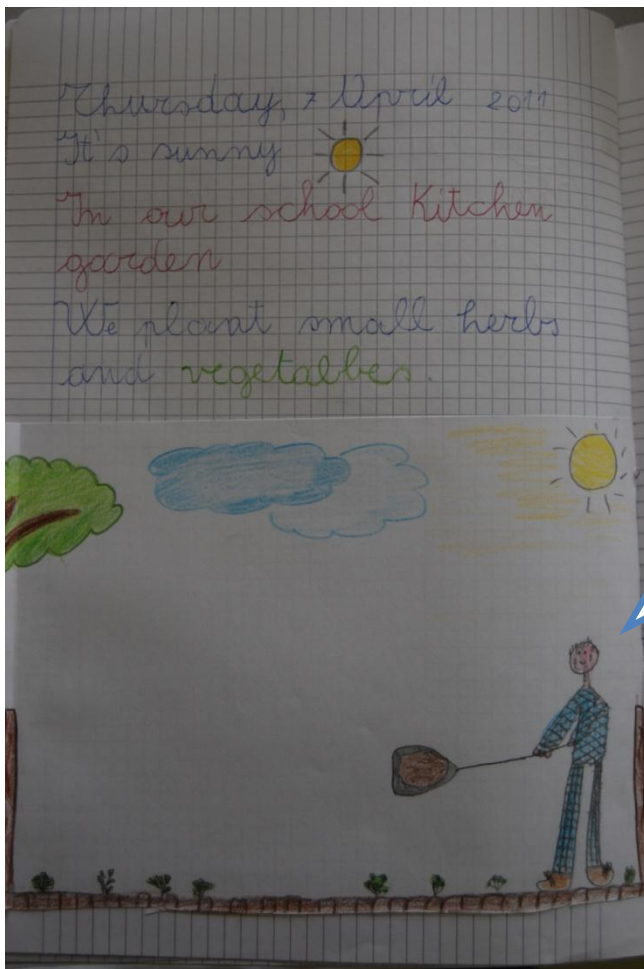 Thursday, 7 April 2011
It's sunny
In our school Kitchen
garden
We plant small herbs
and vegetalbes.